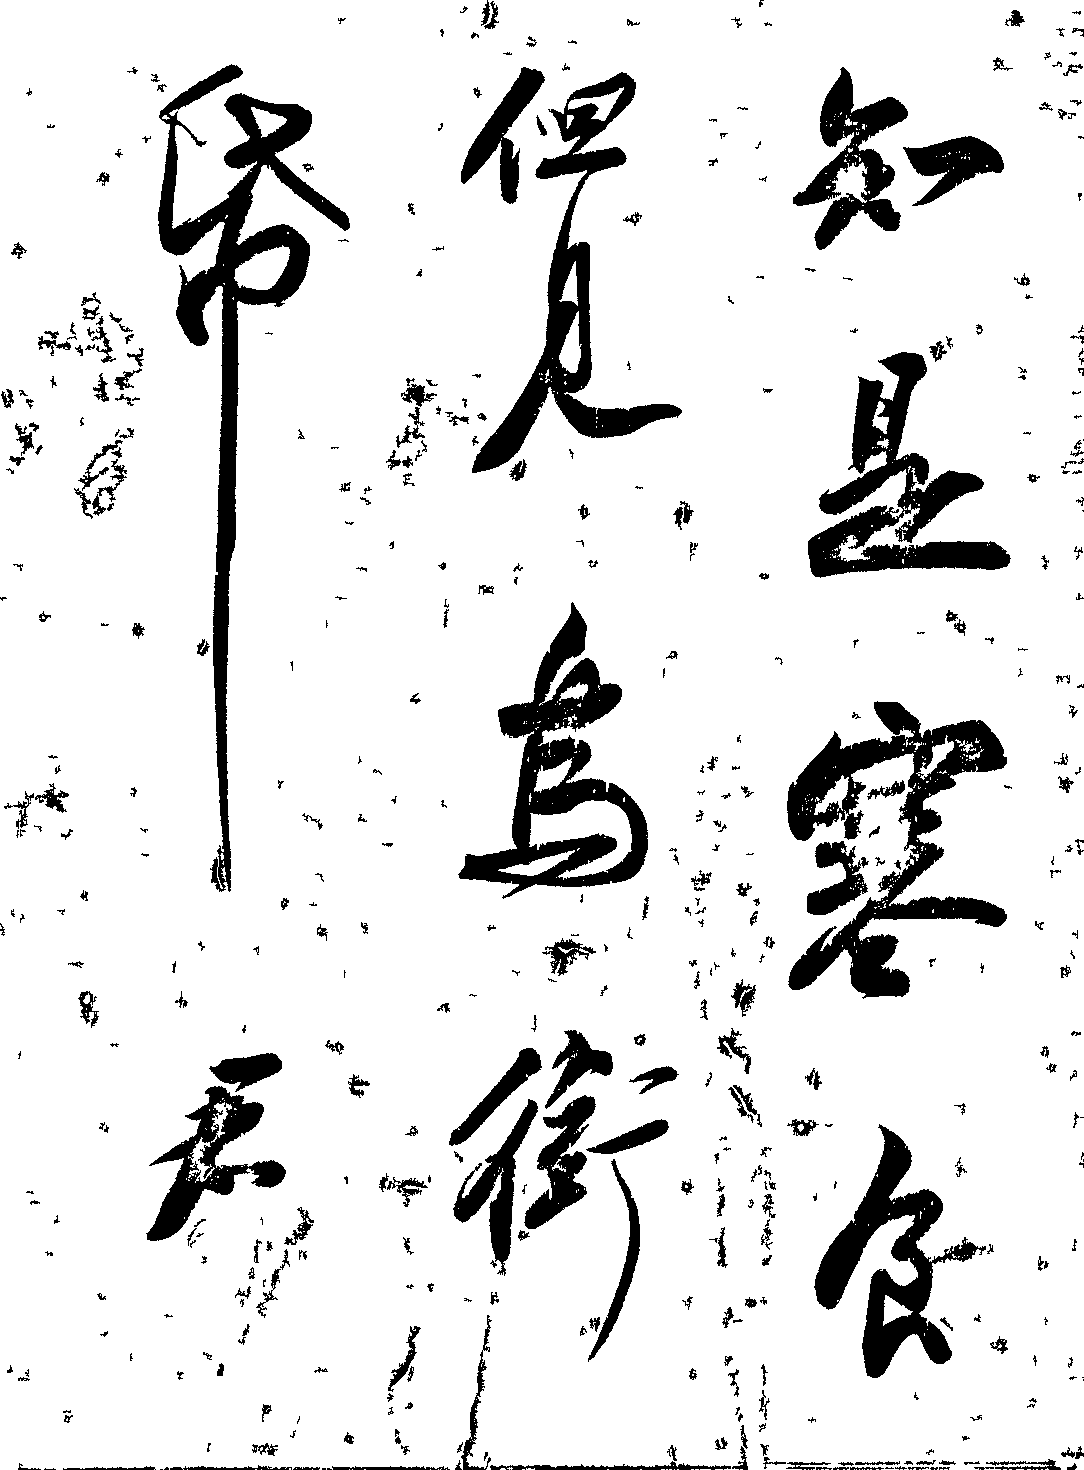 知是寒食
但見烏銜
帋君